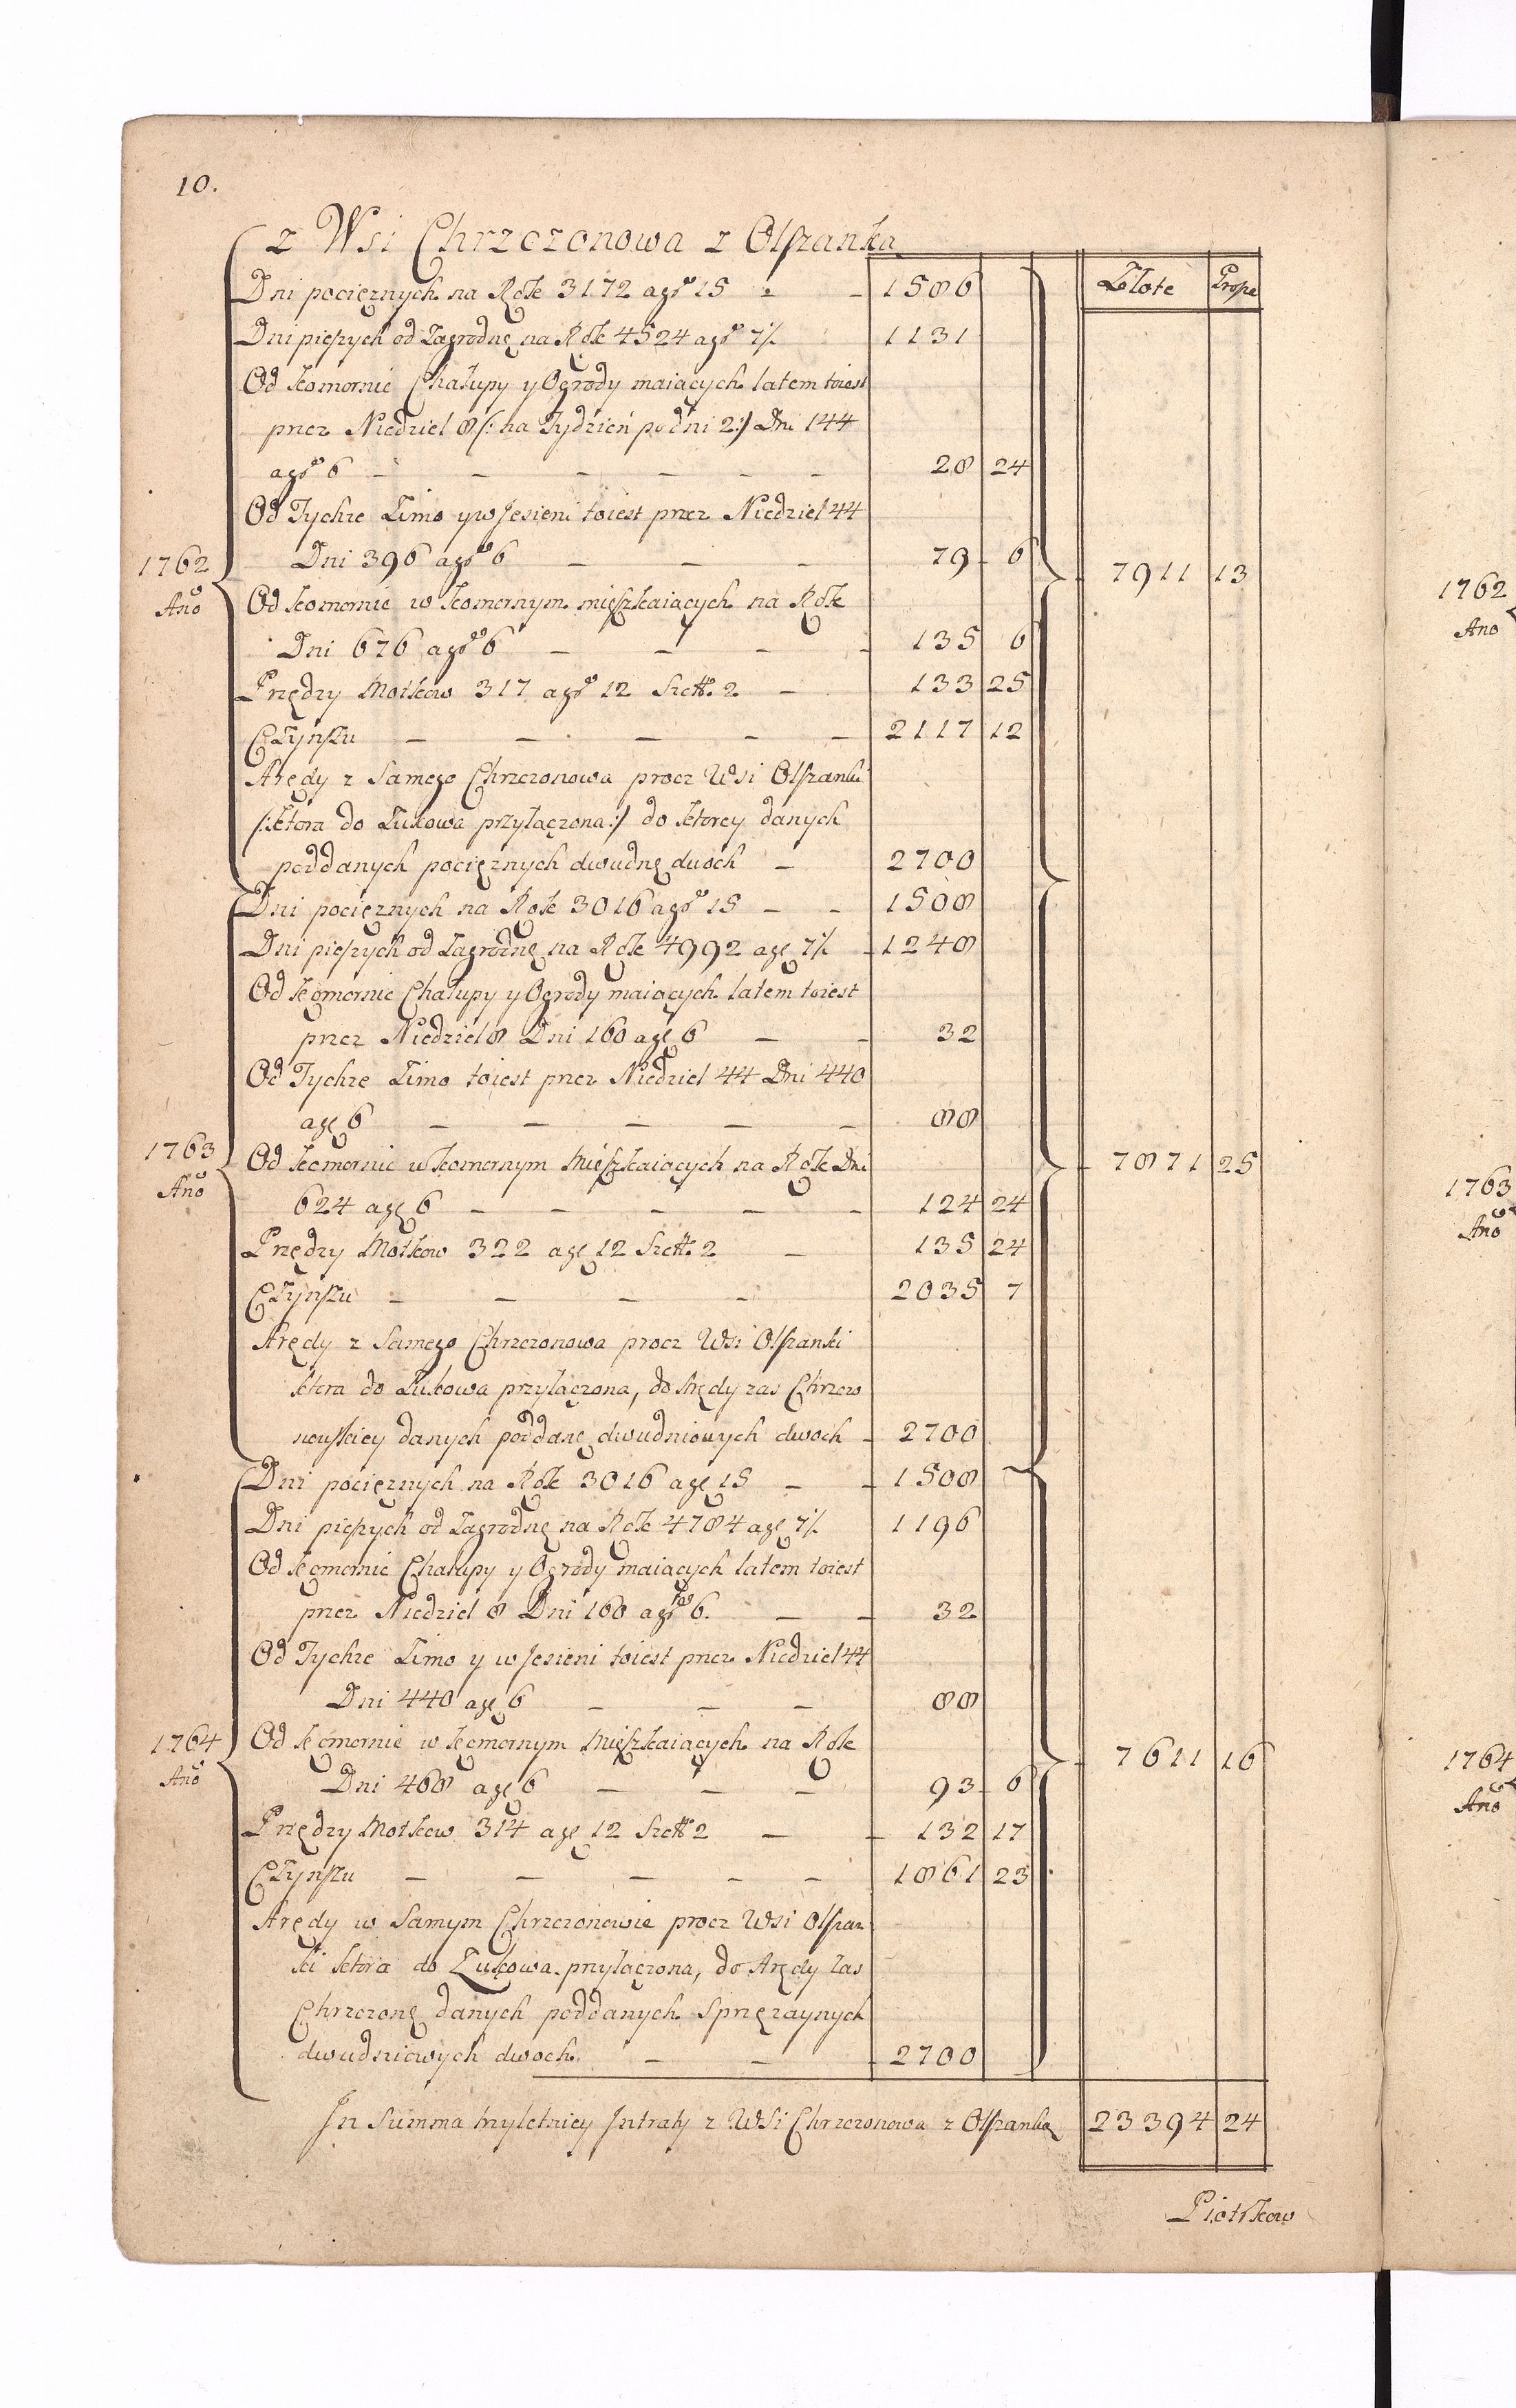 10.
z Wsi Chrzczonowa z Olszanką
Złote Grosze
Dni pociężnych na Rok 3172 a gr 15 - - 1586
Dni pieszych od Zagrodnę na Rok 4524 a gr 7½ 1131
Od komornic Chałupy y Ogrody maiących latem toiest
przez Niedziel 8 /: na Tydzień po dni 2 :/ Dni 144
a gr 6 - - - - - - 28 24
Od Tychże Zimo y w Jesieni toiest przez Niedziel 44
Dni 396 a gr 6 - - - 79 6
1762
Año
7911 13
Od komornic w komornym mięszkaiących na Rok
Dni 676 a gr 6 - - - - 135 6
Przędzy Motkow 317 a gr 12 Szel: 2 - 133 25
Czynszu - - - - - 2117 12
Arędy z Samego Chrzczonowa procz Wsi Olszanki
/: ktora do Łukowa przyłączona :/ do ktorey danych
poddanych pociężnych dwudnę dwoch - 2700
Dni pociężnych na Rok 3016 a gr 15 - - 1508
Dni pieszych od Zagrodnę na Rok 4992 a gę 7½ - 1248
Od komornic Chałupy y Ogrody maiących latem toiest
przez Niedziel 8 Dni 160 a gę 6 - - 32
Od Tychże Zimo toiest przez Niedziel 44 Dni 440
a gę 6 - - - - - 88
1763
Año
7871 25
Od komornic w komornym Mięszkaiących na Rok Dni
624 a gę 6 - - - - - 124 24
Przędzy Motkow 322 a gę 12 Szel: 2 - 135 24
Czynszu - - - - 2035 7
Arędy z Samego Chrzczonowa procz Wsi Olszanki
ktora do Łukowa przyłączona, do Arędy zas Chrzczo
nowskiey danych poddanę dwudniowych dwoch - 2700
Dni pociężnych na Rok 3016 a gę 15 - - 1508
Dni pieszych od Zagrodnę na Rok 4784 a gę 7½ 1196
Od komornic Chałupy y Ogrody maiących latem toiest
przez Niedziel 8 Dni 160 a gr 6. - - 32
Od Tychże Zimo y w Jesieni toiest przez Niedziel 44
Dni 440 a gę 6 - - - 88
1764
Año
7611 16
Od komornic w komornym Mięszkaiących na Rok
Dni 468 a gę 6 - - - 93 6
Przędzy Motkow 314 a gę 12 Szel: 2 - - 132 17
Czynszu - - - - - 1861 23
Arędy w Samym Chrzczonowie procz Wsi Olszan
ki ktora do Łukowa przyłączona, do Arędy zas
Chrzczonę danych poddanych Sprzężaynych
dwudniowych dwoch. - - - 2700
In Summa trzyletniey Intraty z Wsi Chrzczonowa z Olszanką 23394 24
Piotrkow
1762
Año
1763
Año
1764
Año